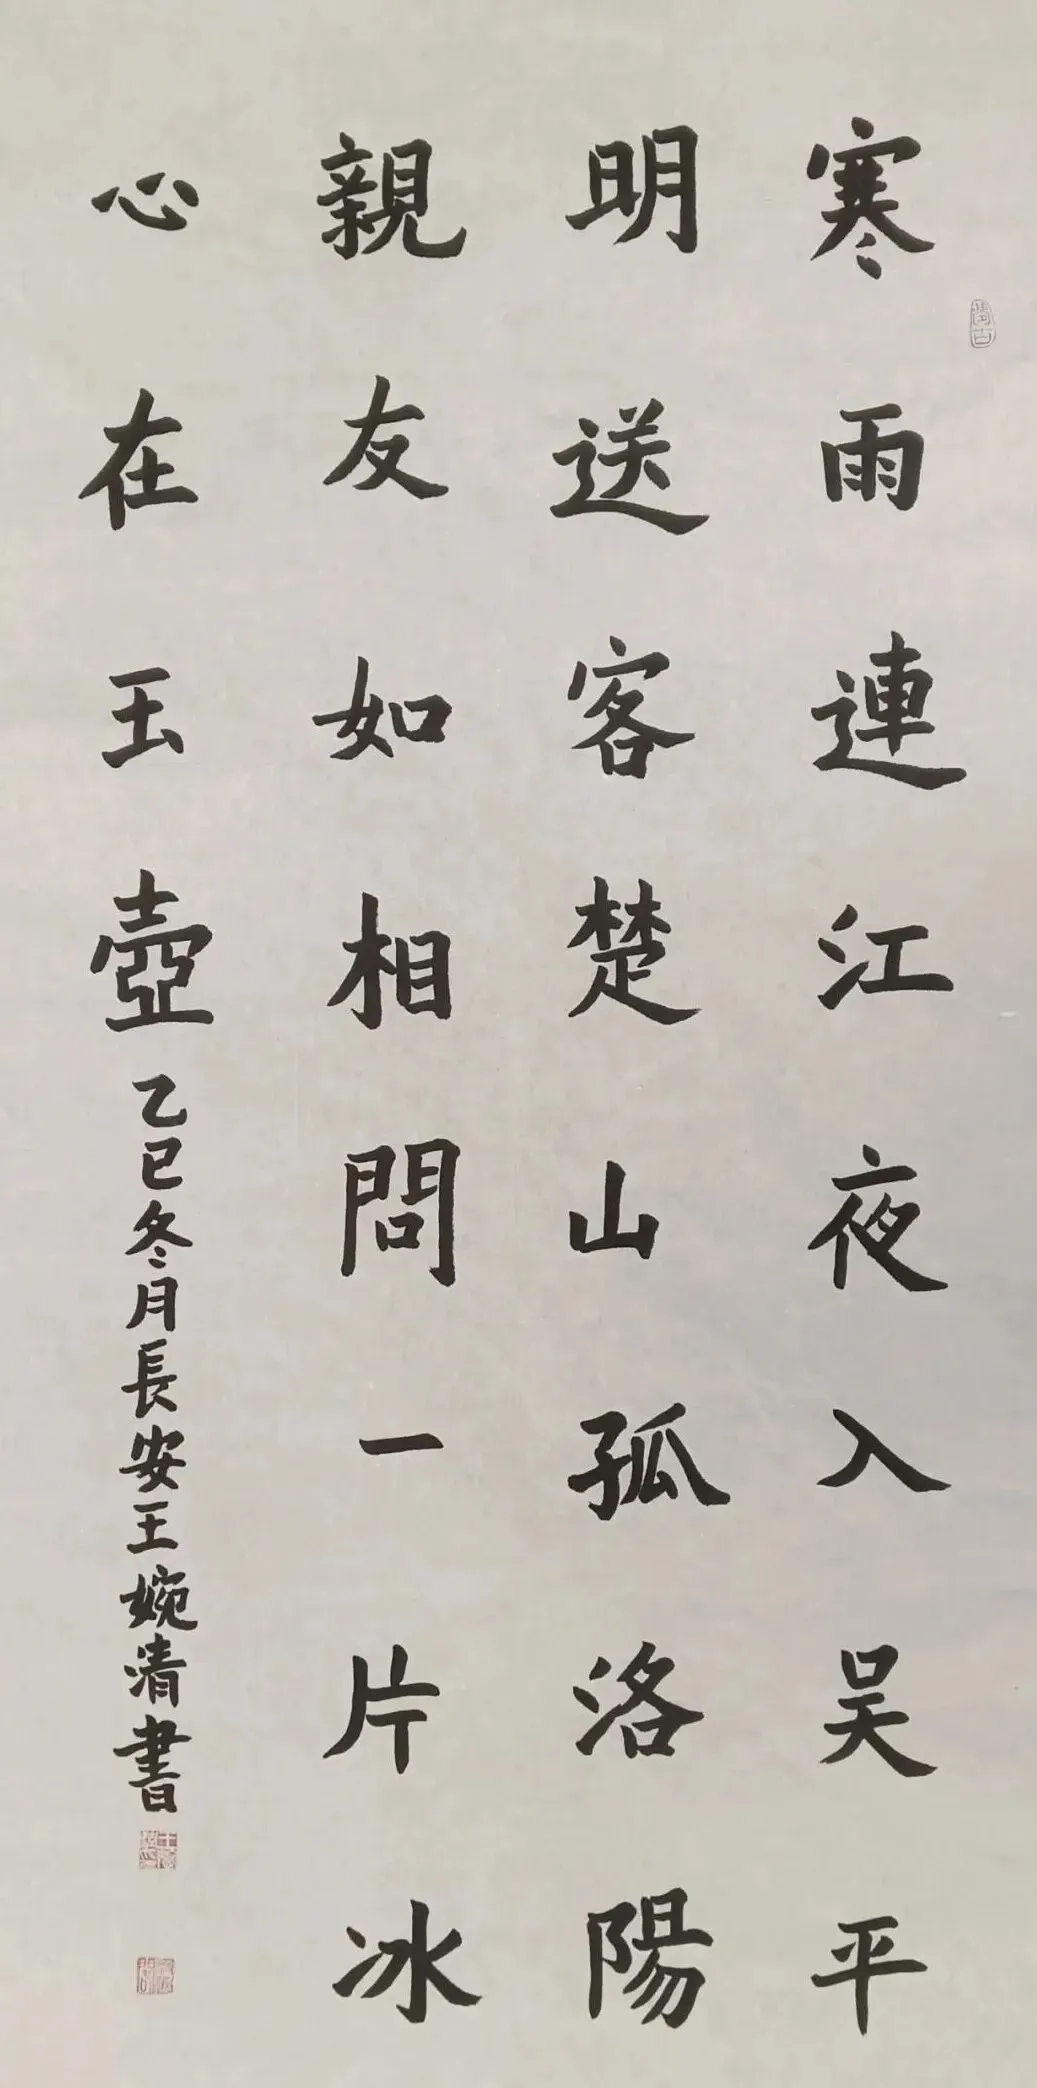 寒雨連江夜入吴平
明送客楚山孤洛陽
親友如相問一片冰
心在玉壺
乙巳冬月長安王婉清書